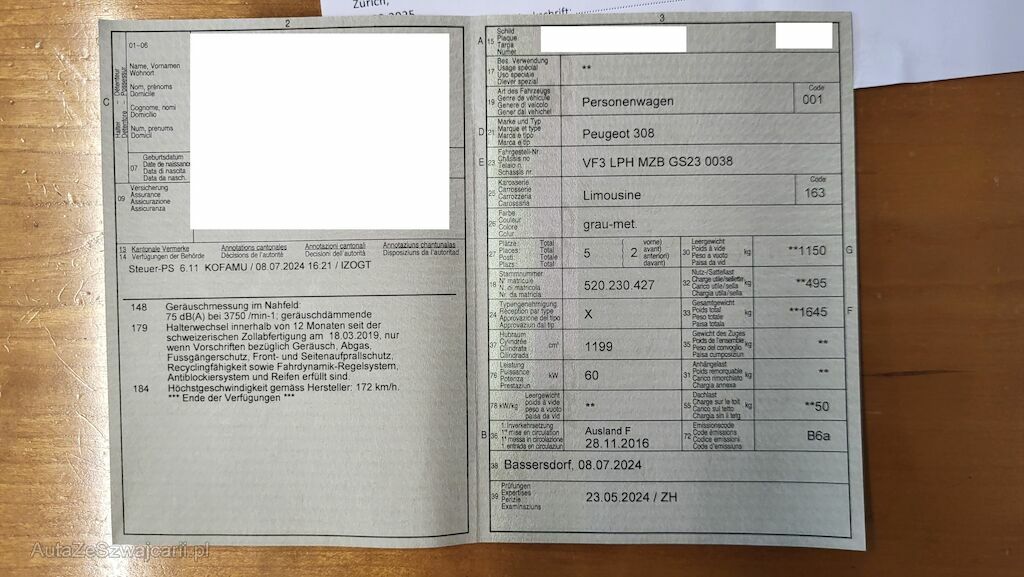 Zürich,
2
01-06
Name, Vornamen
Wohnort
Nom, prénoms
Domicile
Cognome, nomi
Domicilio
Num, prenums
Domicil
C
Halter Détenteur
Detentore Possessur
07
Geburtsdatum
Date de naissance
Data di nascita
Data da nasch.
09
Versicherung
Assurance
Assicurazione
Assicuranza
13 Kantonale Vermerke Annotations cantonales Annotazioni cantonali Annotaziuns chantunalas
14 Verfügungen der Behörde Décisions de l'autorité Decisioni dell'autorità Disposiziuns da l'autoritad
Steuer-PS 6.11 KOFAMU / 08.07.2024 16:21 / IZOGT
148 Geräuschmessung im Nahfeld:
75 dB(A) bei 3750 /min-1; geräuschdämmende
179 Halterwechsel innerhalb von 12 Monaten seit der
schweizerischen Zollabfertigung am 18.03.2019, nur
wenn Vorschriften bezüglich Geräusch, Abgas,
Fussgängerschutz, Front- und Seitenaufprallschutz,
Recyclingfähigkeit sowie Fahrdynamik-Regelsystem,
Antiblockiersystem und Reifen erfüllt sind.
184 Höchstgeschwindigkeit gemäss Hersteller: 172 km/h.
*** Ende der Verfügungen ***
3
A 15 Schild
Plaque
Targa
Numer
17 Bes. Verwendung
Usage spécial
Uso speciale
Diever spezial
**
19 Art des Fahrzeugs
Genre de véhicule
Genere di veicolo
Gener dal vehichel
Personenwagen
Code
001
D 21 Marke und Typ
Marque et type
Marca e tipo
Marca e tip
Peugeot 308
E 23 Fahrgestell-Nr.
Châssis no
Telaio n.
Schassis nr.
VF3 LPH MZB GS23 0038
25 Karosserie
Carrosserie
Carrozzeria
Carossaria
Limousine
Code
163
26 Farbe
Couleur
Colore
Colur
grau-met.
27 Plätze: Total
Places: Total
Posti: Total
Plazs: Total
5
2
vorne)
avant)
anteriori)
davant)
30 Leergewicht
Poids à vide
Peso a vuoto
Paisa da vid
kg
**1150
G
18 Stammnummer
N° matricule
N. di matricola
Nr. da matricla
520.230.427
32 Nutz-/Sattellast
Charge utile/sellette
Carico utile/sella
Chargia utila/sella
kg
**495
24 Typengenehmigung
Réception par type
Approvazione del tipo
Approvaziun dal tip
X
33 Gesamtgewicht
Poids total
Peso totale
Paisa totala
kg
**1645
F
37 Hubraum
Cylindrée
Cilindrata
Cilindrada
cm³
1199
35 Gewicht des Zuges
Poids de l'ensemble
Peso del convoglio
Paisa cumposiziun
kg
**
76 Leistung
Puissance
Potenza
Prestaziun
kW
60
31 Anhängelast
Poids remorquable
Carico rimorchiato
Chargia annexa
kg
**
78 kW/kg
Leergewicht
poids à vide
peso a vuoto
paisa da vid
**
55 Dachlast
Charge sur le toit
Carico sul tetto
Chargia sin il tetg
kg
**50
B 36 1. Inverkehrsetzung
1re mise en circulation
1a messa in circolazione
1. entrada en circulaziun
Ausland F
28.11.2016
72 Emissionscode
Code émissions
Codice emissioni
Code d'emissiuns
B6a
38 Bassersdorf, 08.07.2024
39 Prüfungen
Expertises
Perizie
Examinaziuns
23.05.2024 / ZH
AutaZeSzwajcarii.pl